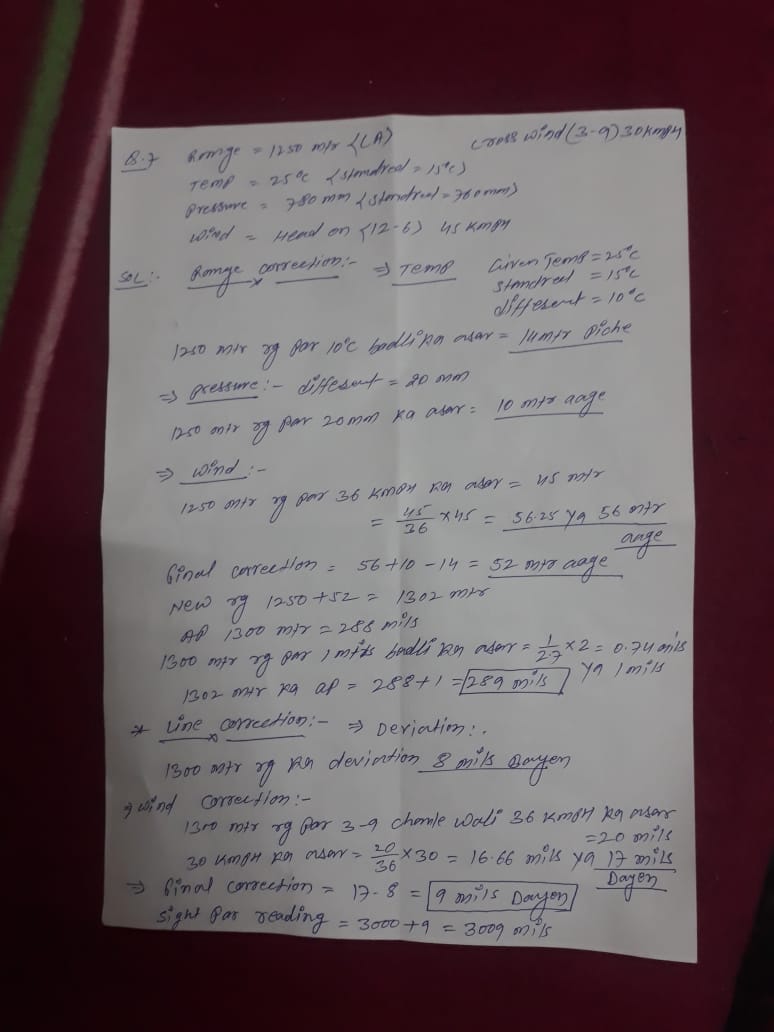 Q.7 Range = 1250 mtr {LA) Cross wind (3-9) 30 kmph
Temp = 25°c {Standred = 15°c)
Pressure = 780 mm {Standred = 760mm)
Wind = Head on {12-6) 45 kmph
Sol:- Range correction:- ⇒ Temp Given Temp = 25°c
Standred = 15°c
different = 10°c
1250 mtr rg par 10°c badli ka asar = 14 mtr Piche
⇒ Pressure:- different = 20 mm
1250 mtr rg par 20mm ka asar = 10 mtr aage
⇒ wind :-
1250 mtr rg par 36 kmph ka asar = 45 mtr
= 45/36 x 45 = 56.25 ya 56 mtr
aage
final correction = 56 + 10 - 14 = 52 mtr aage
New rg 1250 + 52 = 1302 mtr
AP 1300 mtr = 288 mils
1300 mtr rg par 1 mils badli ka asar = 1/2.7 x 2 = 0.74 mils
ya 1 mils
1302 mtr ka ap = 288 + 1 = 289 mils
* Line correction:- ⇒ Deviation:.
1300 mtr rg ka deviation 8 mils Dayen
⇒ wind correction:-
1300 mtr rg par 3-9 chanle wali 36 kmph ka asar
= 20 mils
30 kmph ka asar = 20/36 x 30 = 16.66 mils ya 17 mils
Dayen
⇒ final correction = 17 - 8 = 9 mils Dayen
Sight par reading = 3000 + 9 = 3009 mils